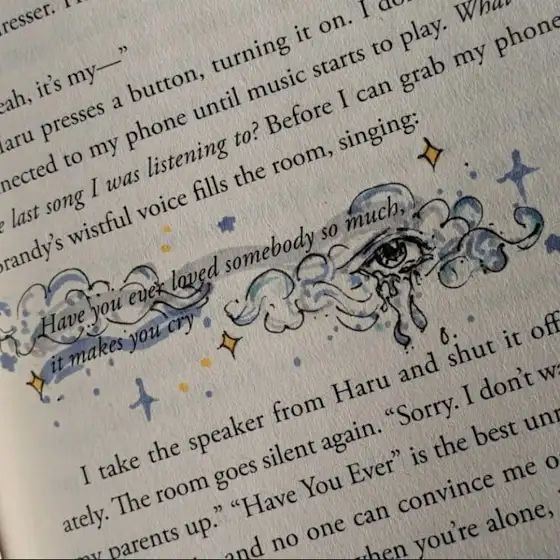 resser.
eah, it's my—"
Haru presses a button, turning it on. I do
nnected to my phone until music starts to play. What
e last song I was listening to? Before I can grab my phone
Brandy's wistful voice fills the room, singing:
Have you ever loved somebody so much,
it makes you cry
I take the speaker from Haru and shut it off
ately. The room goes silent again. "Sorry. I don't wa
my parents up." "Have You Ever" is the best un
and no one can convince me o
when you're alone,